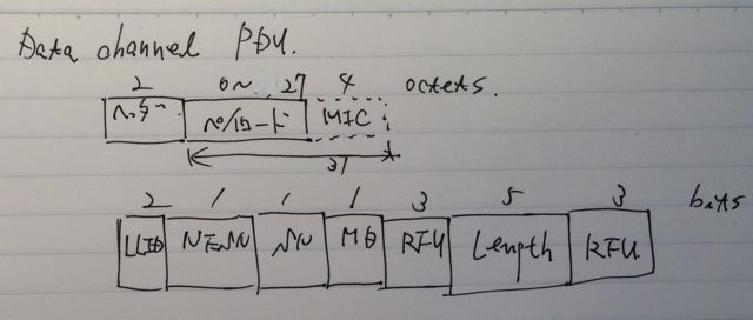 Data channel PDU.
2 0~27 4 octets.
ヘッダー ペイロード MIC
31
2 1 1 1 3 5 3 bits
LLID NESN SN MD RFU Length RFU.